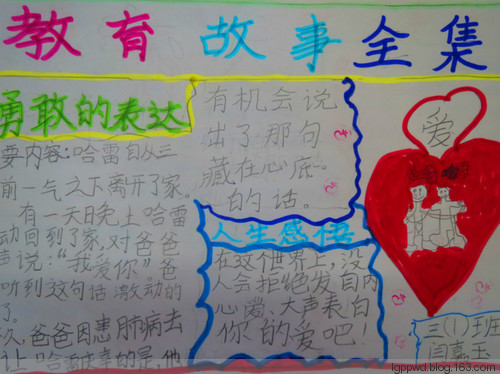 教育 故事全集
勇敢的表达
要内容:哈雷自从三
前一气之下离开了家。
有一天晚上哈雷
动回到了家,对爸爸
声说:“我爱你”。爸
听到这句话激动的
了。
久,爸爸因患肺病去
让哈雷庆幸的是,他
有机会说
出了那句
藏在心底
的话。
人生感悟
在这个世界上,没
人会拒绝发自内
心爱、大声表白
你的爱吧!
爱
三(1)班
闫嘉玉
lgppwd.blog.163.com